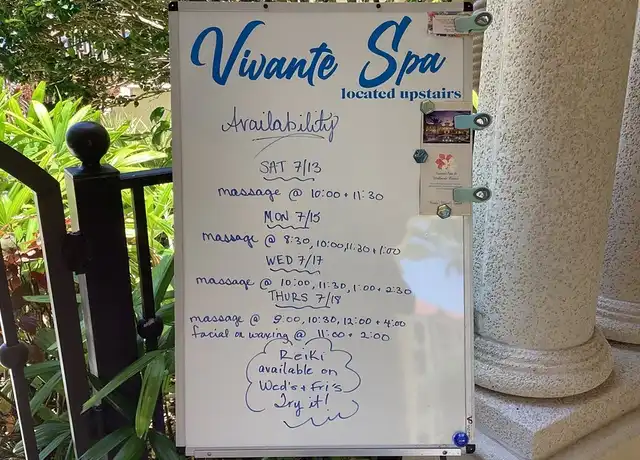 Vivante Spa
located upstairs
Availability
SAT 7/13
massage @ 10:00 + 11:30
MON 7/15
massage @ 8:30, 10:00, 11:30 + 1:00
WED 7/17
massage @ 10:00, 11:30, 1:00 + 2:30
THURS 7/18
massage @ 9:00, 10:30, 12:00 + 4:00
facial or waxing @ 11:00 + 2:00
Reiki
available on
Wed's + Fri's
Try it!